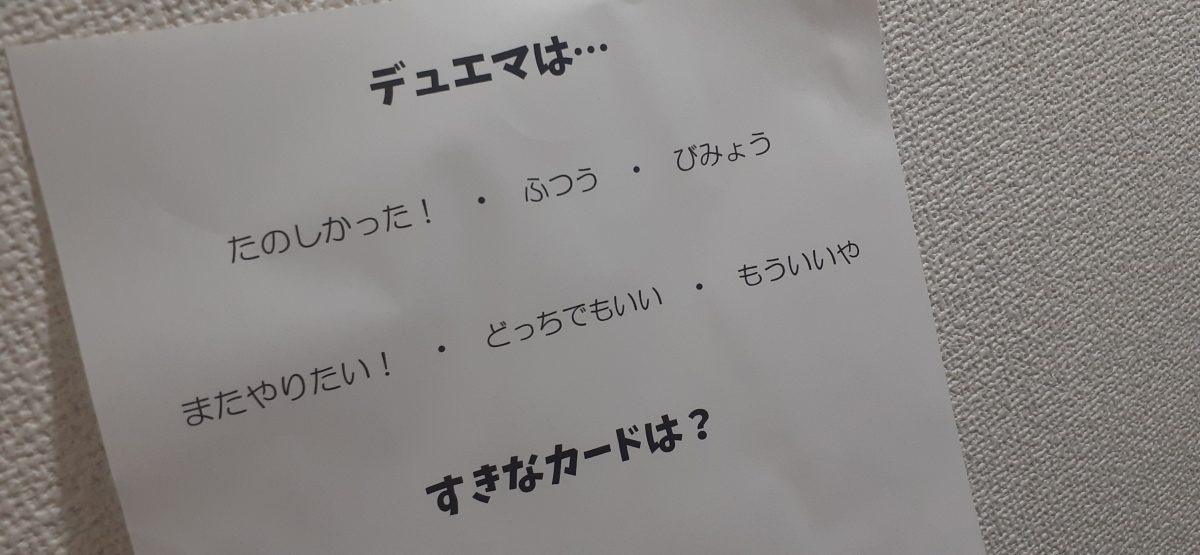 デュエマは…
たのしかった！ ・ ふつう ・ びみょう
またやりたい！ ・ どっちでもいい ・ もういいや
すきなカードは？